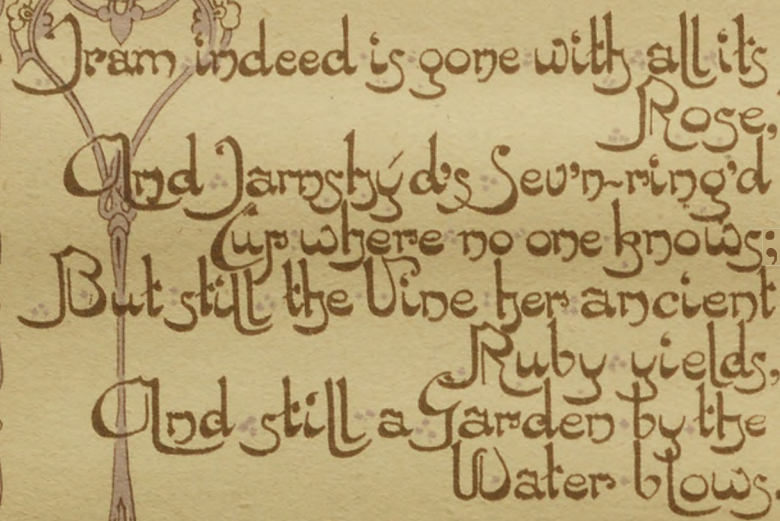 Iram indeed is gone with all its
Rose,
And Jamshýd's Sev'n-ring'd
Cup where no one knows;
But still the Vine her ancient
Ruby yields,
And still a Garden by the
Water blows.